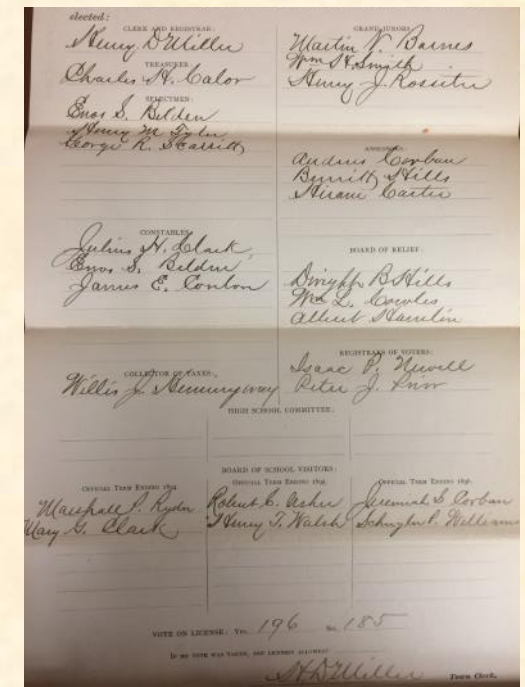 elected:
CLERK AND REGISTRAR:
Henry D Miller
TREASURER:
Charles H. Calor
SELECTMEN:
Enos S. Belden
Henry M Tyler
George R. Scarritt
CONSTABLES:
Julius H. Clark,
Enos S. Belden
James E. Conlon
COLLECTOR OF TAXES:
Willis J. Hemingway
GRAND JURORS:
Martin V. Barnes
Wm H. Smith
Henry J. Rossiter
ASSESSORS:
Andrus Corban
Burritt Hills
Hiram Carter
BOARD OF RELIEF:
Dwight B Hills
Wm L. Cowles
Albert Hamlin
REGISTRARS OF VOTERS:
Isaac P. Newell
Peter J.
HIGH SCHOOL COMMITTEE:
BOARD OF SCHOOL VISITORS:
OFFICIAL TERM ENDING 1894.
Marshall J. Ryder
Mary G. Clark
OFFICIAL TERM ENDING 1895.
Robert C. Usher
Henry T. Walsh
OFFICIAL TERM ENDING 1896.
Jeremiah S. Corban
Schuyler P. Williams
VOTE ON LICENSE: Yes, 196 No, 185
IF NO VOTE WAS TAKEN, ARE LICENSES ALLOWED?
H D Miller Town Clerk.